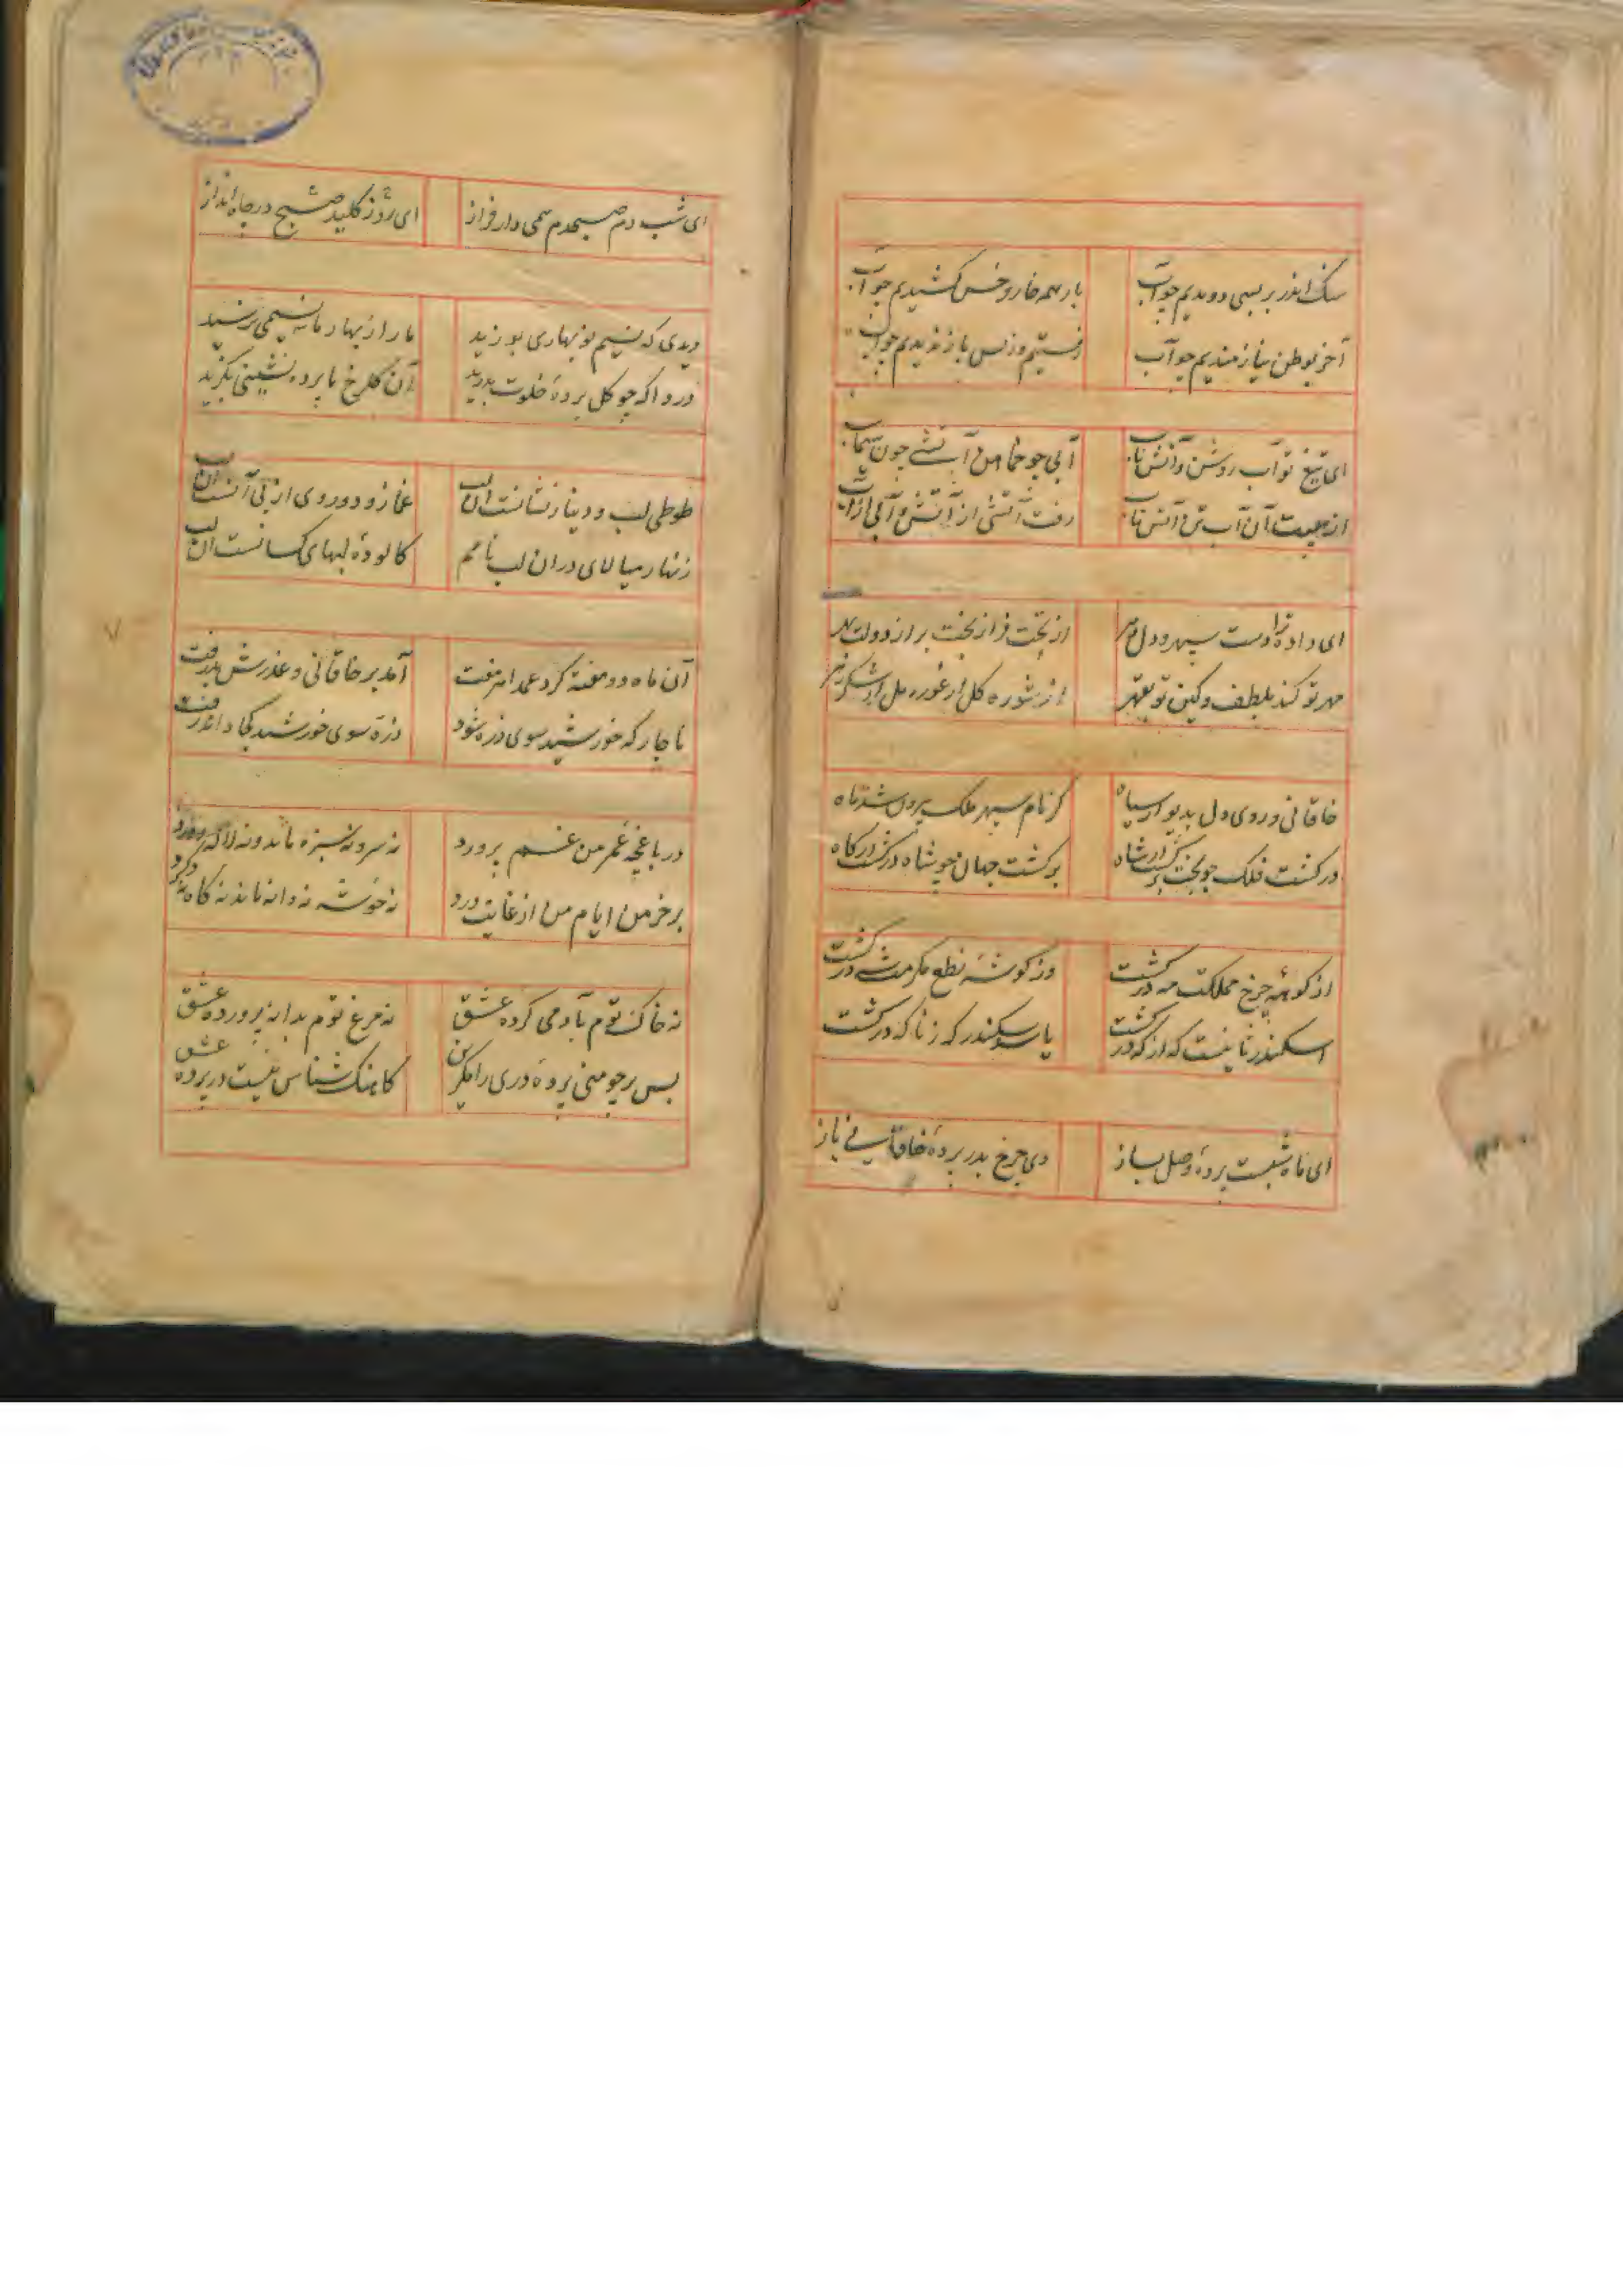 سنگ اندر بر بسی دویدیم چو آب بار همه خار و خس کشیدیم چو آب
آخر بوطن نیارمیدیم چو آب رفتیم و ز پس باز ندیدیم چو آب
ای تیغ تو آب روشن و آتش ناب آبی چو خماهن آتشی چون سیماب
از هیبت آن آب تن آتش تاب رفت آتشی از آتش و آبی از آب
ای داده ترا دست سپهر و دل دهر از تخت فراز تخت بر از دولت بهر
مهر تو کند بلطف و کین تو بقهر از شوره گل از غوره مل از شکر زهر
خاقانی و روی دل بدیوار سیاه کز بام سپهر ملک بیرون شد ماه
در گشت فلک چو بخت برگشت از شاه برگشت جهان چو شاه درگشت از گاه
از کوهه چرخ مملکت مه درگشت وز گوشه نطع مکرمت شه درگشت
اسکندر ثانیست که از گه درگشت یا سد سکندر که ز ناگه درگشت
ای ماه شبست پرده وصل بساز وی چرخ مدر پرده خاقانی باز
ای شب دم صبحدم همی دار فراز ای روز کلید صبح در چاه انداز
دیدی که نسیم نوبهاری بوزید ما را ز بهار ما نسیمی نرسید
دردا که چو گل پرده خلوت بدرید آن گلرخ ما پرده نشینی بگزید
طوطی لب و دینار نشانست آن لب غماز و دوروی از پی آنست آن لب
زنهار میالای در آن لب نامم کالوده لبهای کسانست آن لب
آن ماه دو هفته کرد عمدا هر هفت آمد بر خاقانی و عذرش پذرفت
ناچار که خورشید سوی ذره شود ذره سوی خورشید کجا داند رفت
در باغچه عمر من غم پرورد نه سرو نه سبزه ماند و نه لاله نه ورد
بر خرمن ایام من از غایت درد نه خوشه نه دانه ماند نه کاه نه گرد
نه خاک توم بآدمی کرده عشق نه مرغ توم بدانه پرورده عشق
بس بر چو منی پرده دری رامگزین کاهنگ شناس نیست در پرده عشق